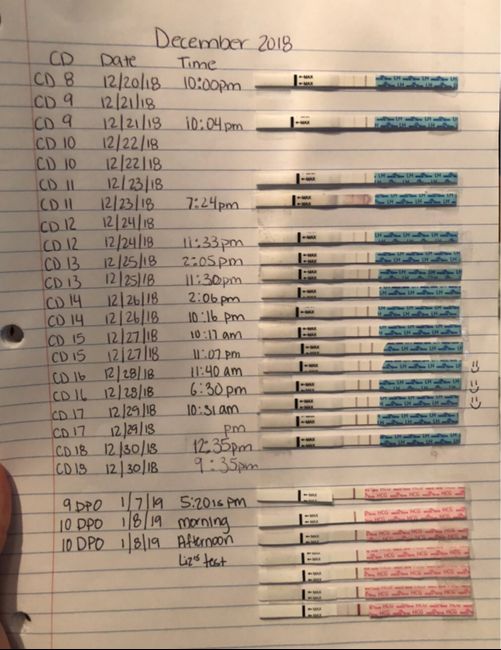 December 2018
CD Date Time
CD 8 12/20/18 10:00pm
CD 9 12/21/18
CD 9 12/21/18 10:04pm
CD 10 12/22/18
CD 10 12/22/18
CD 11 12/23/18
CD 11 12/23/18 7:24pm
CD 12 12/24/18
CD 12 12/24/18 11:33pm
CD 13 12/25/18 2:05pm
CD 13 12/25/18 11:30pm
CD 14 12/26/18 2:06pm
CD 14 12/26/18 10:16pm
CD 15 12/27/18 10:17am
CD 15 12/27/18 11:07pm
CD 16 12/28/18 11:40am
CD 16 12/28/18 6:30pm
CD 17 12/29/18 10:31am
CD 17 12/29/18 pm
CD 18 12/30/18 12:35pm
CD 18 12/30/18 9:35pm
9 DPO 1/7/19 5:20ispm
10 DPO 1/8/19 morning
10 DPO 1/8/19 Afternoon
Liz's test
MAX
LH
HCG